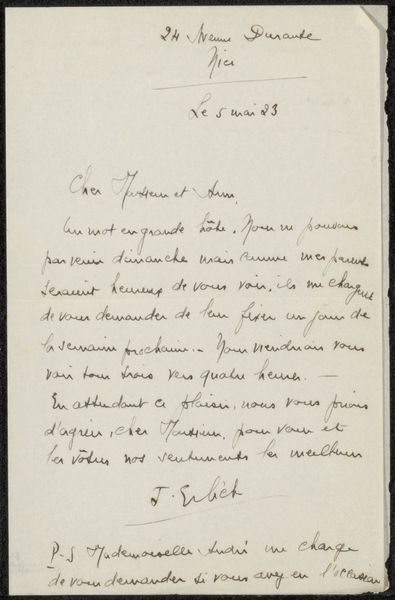 24 Avenue Durante
Nice
Le 5 mai 23
Cher Monsieur et Ami,
Un mot en grande hâte. Nous ne pouvons
pas venir dimanche mais comme mes parents
seraient heureux de vous voir, ils me chargent
de vous demander de leur fixer un jour de
la semaine prochaine. — Nous viendrions vous
voir tous trois vers quatre heures. —
En attendant ce plaisir, nous vous prions
d'agréer, cher Monsieur, pour vous et
les vôtres nos sentiments les meilleurs
J.
P-S Mademoiselle André me charge
de vous demander si vous avez eu l'occasion